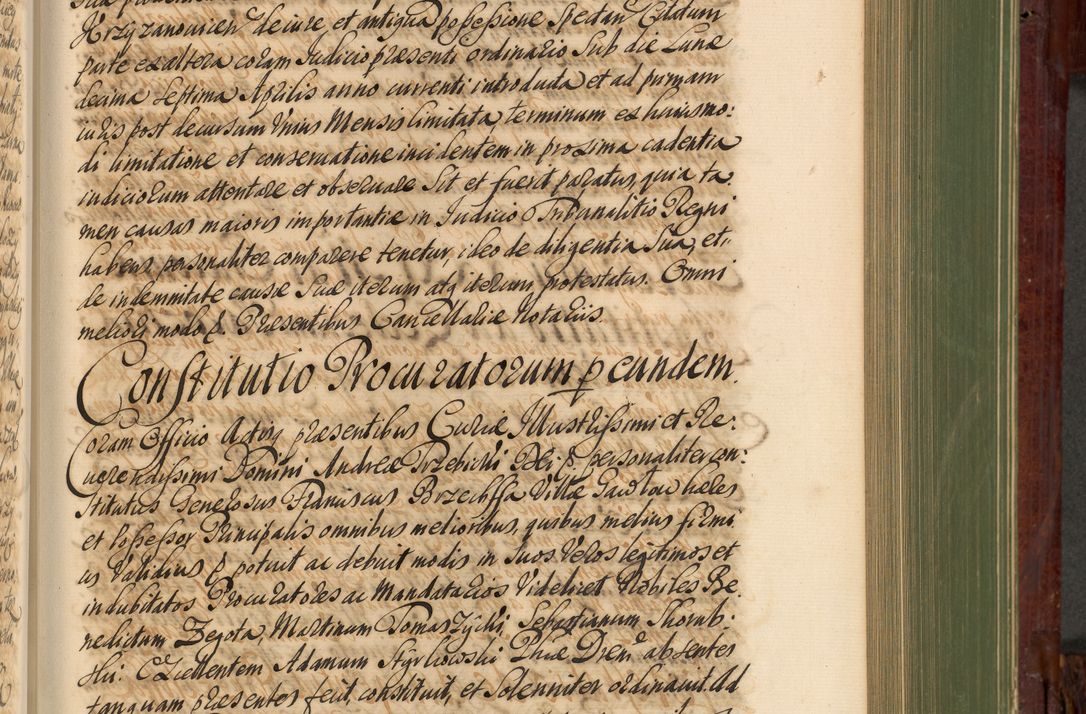 Krzyzanowien de iure et antiqua possessione Spectan Citatum
parte ex altera coram Judicio præsenti ordinario Sub die Lunæ
decima Septima Aprilis anno currenti introducta et ad primam
iuris post decursum Unius Mensis limitata, terminum ex huiusmo:
di limitatione et conservatione incidentem in proxima cadentia
iudiciorum attentare et observare Sit et fuerit paratus, quia ta
men causas maioris importantiæ in Judicio Tribunalitio Regni
habens personaliter comparere tenetur, ideo de diligentia Sua, et
de indemnitate causæ Suæ iterum atq iterum protestatus. Omni
meliori modo p. Præsentibus Cancellariæ Notariis.
Constitutio Procuratorum p eundem.
Coram Officio Actisq præsentibus Curiæ Illustrissimi et Re:
verendissimi Domini Andreæ Trzebicki Dei p. personaliter con:
stitutus Generosus Franciscus Brzechffa Villæ Gawlow hæres
et Possessor Principalis omnibus melioribus, quibus melius firmi
us Validius p potuit ac debuit modis in Suos Veros legitimos et
indubitatos Procuratores ac Mandatarios Videlicet Nobiles Be:
nedictum Zegota, Martinum Tomaszycki, Sebastianum Skorub:
ski. Excellentem Adamum Styrkowski Phiæ Dren. absentes
tanquam præsentes fecit, constituit, et Solenniter ordinavit Ad